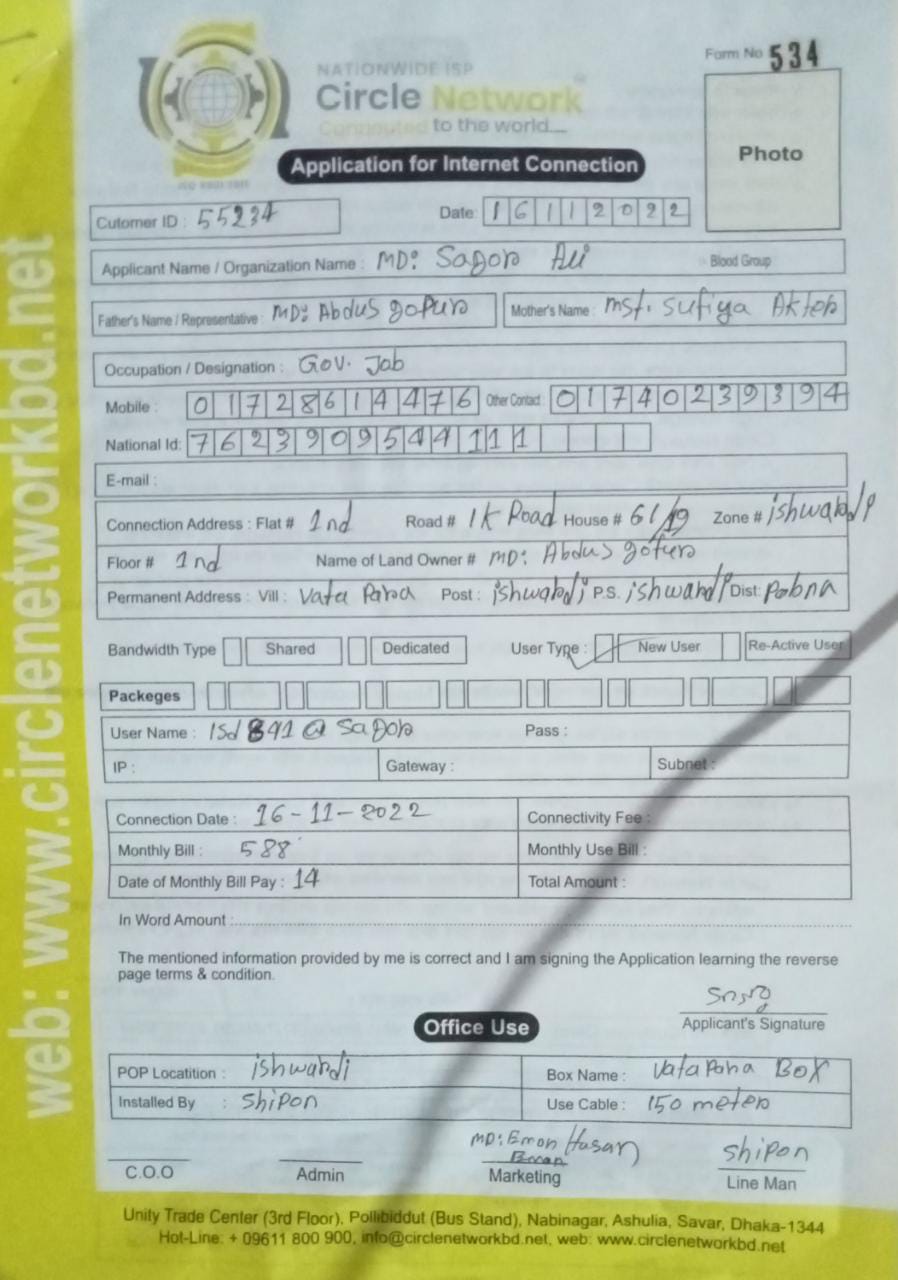 Form No 534
NATIONWIDE ISP
Circle Network
Connected to the world....
Photo
Application for Internet Connection
Cutomer ID : 55234 Date: 16112022
Applicant Name / Organization Name : MD: Sagor Ali Blood Group
Father's Name / Representative : MD: Abdus gofur Mother's Name : mst. sufiya Akter
Occupation / Designation : Gov. Job
Mobile : 01728614476 Other Contact 01740239394
National Id: 7623909544111
E-mail :
Connection Address : Flat # 1nd Road # IK Road House # 61/19 Zone # ishwardi
Floor # 1nd Name of Land Owner # MD: Abdus gofur
Permanent Address : Vill : Vata Para Post : ishwardi P.S. ishwardi Dist: Pabna
Bandwidth Type Shared Dedicated User Type : New User Re-Active User
Packeges
User Name : ISd891@sagor Pass :
IP : Gateway : Subnet :
Connection Date : 16-11-2022 Connectivity Fee :
Monthly Bill : 588 Monthly Use Bill :
Date of Monthly Bill Pay : 14 Total Amount :
In Word Amount :
The mentioned information provided by me is correct and I am signing the Application learning the reverse
page terms & condition.
Applicant's Signature
Office Use
POP Locatition : ishwardi Box Name : Vata Para BOX
Installed By : Shipon Use Cable : 150 meter
MD: Emon Hasan
shipon
C.O.O Admin Marketing Line Man
Unity Trade Center (3rd Floor). Pollibiddut (Bus Stand), Nabinagar, Ashulia, Savar, Dhaka-1344
Hot-Line: + 09611 800 900, info@circlenetworkbd.net, web: www.circlenetworkbd.net
web: www.circlenetworkbd.net